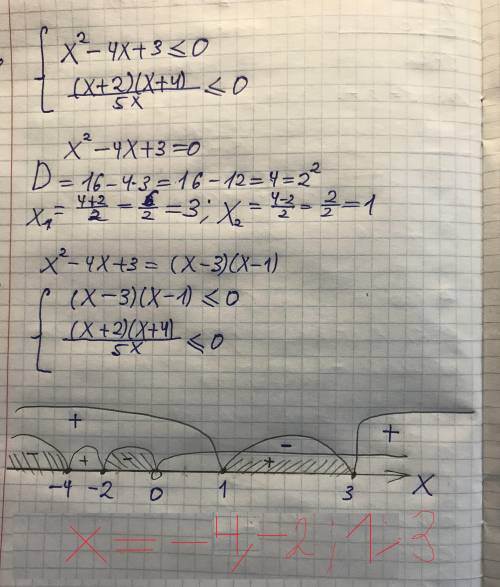 x² - 4x + 3 ≤ 0
(x+2)(x+4)/5x ≤ 0
x² - 4x + 3 = 0
D = 16 - 4·3 = 16 - 12 = 4 = 2²
x₁ = (4+2)/2 = 6/2 = 3; x₂ = (4-2)/2 = 2/2 = 1
x² - 4x + 3 = (x-3)(x-1)
(x-3)(x-1) ≤ 0
(x+2)(x+4)/5x ≤ 0
+ - +
- + - +
-4 -2 0 1 3 x
x = -4; -2; 1; 3